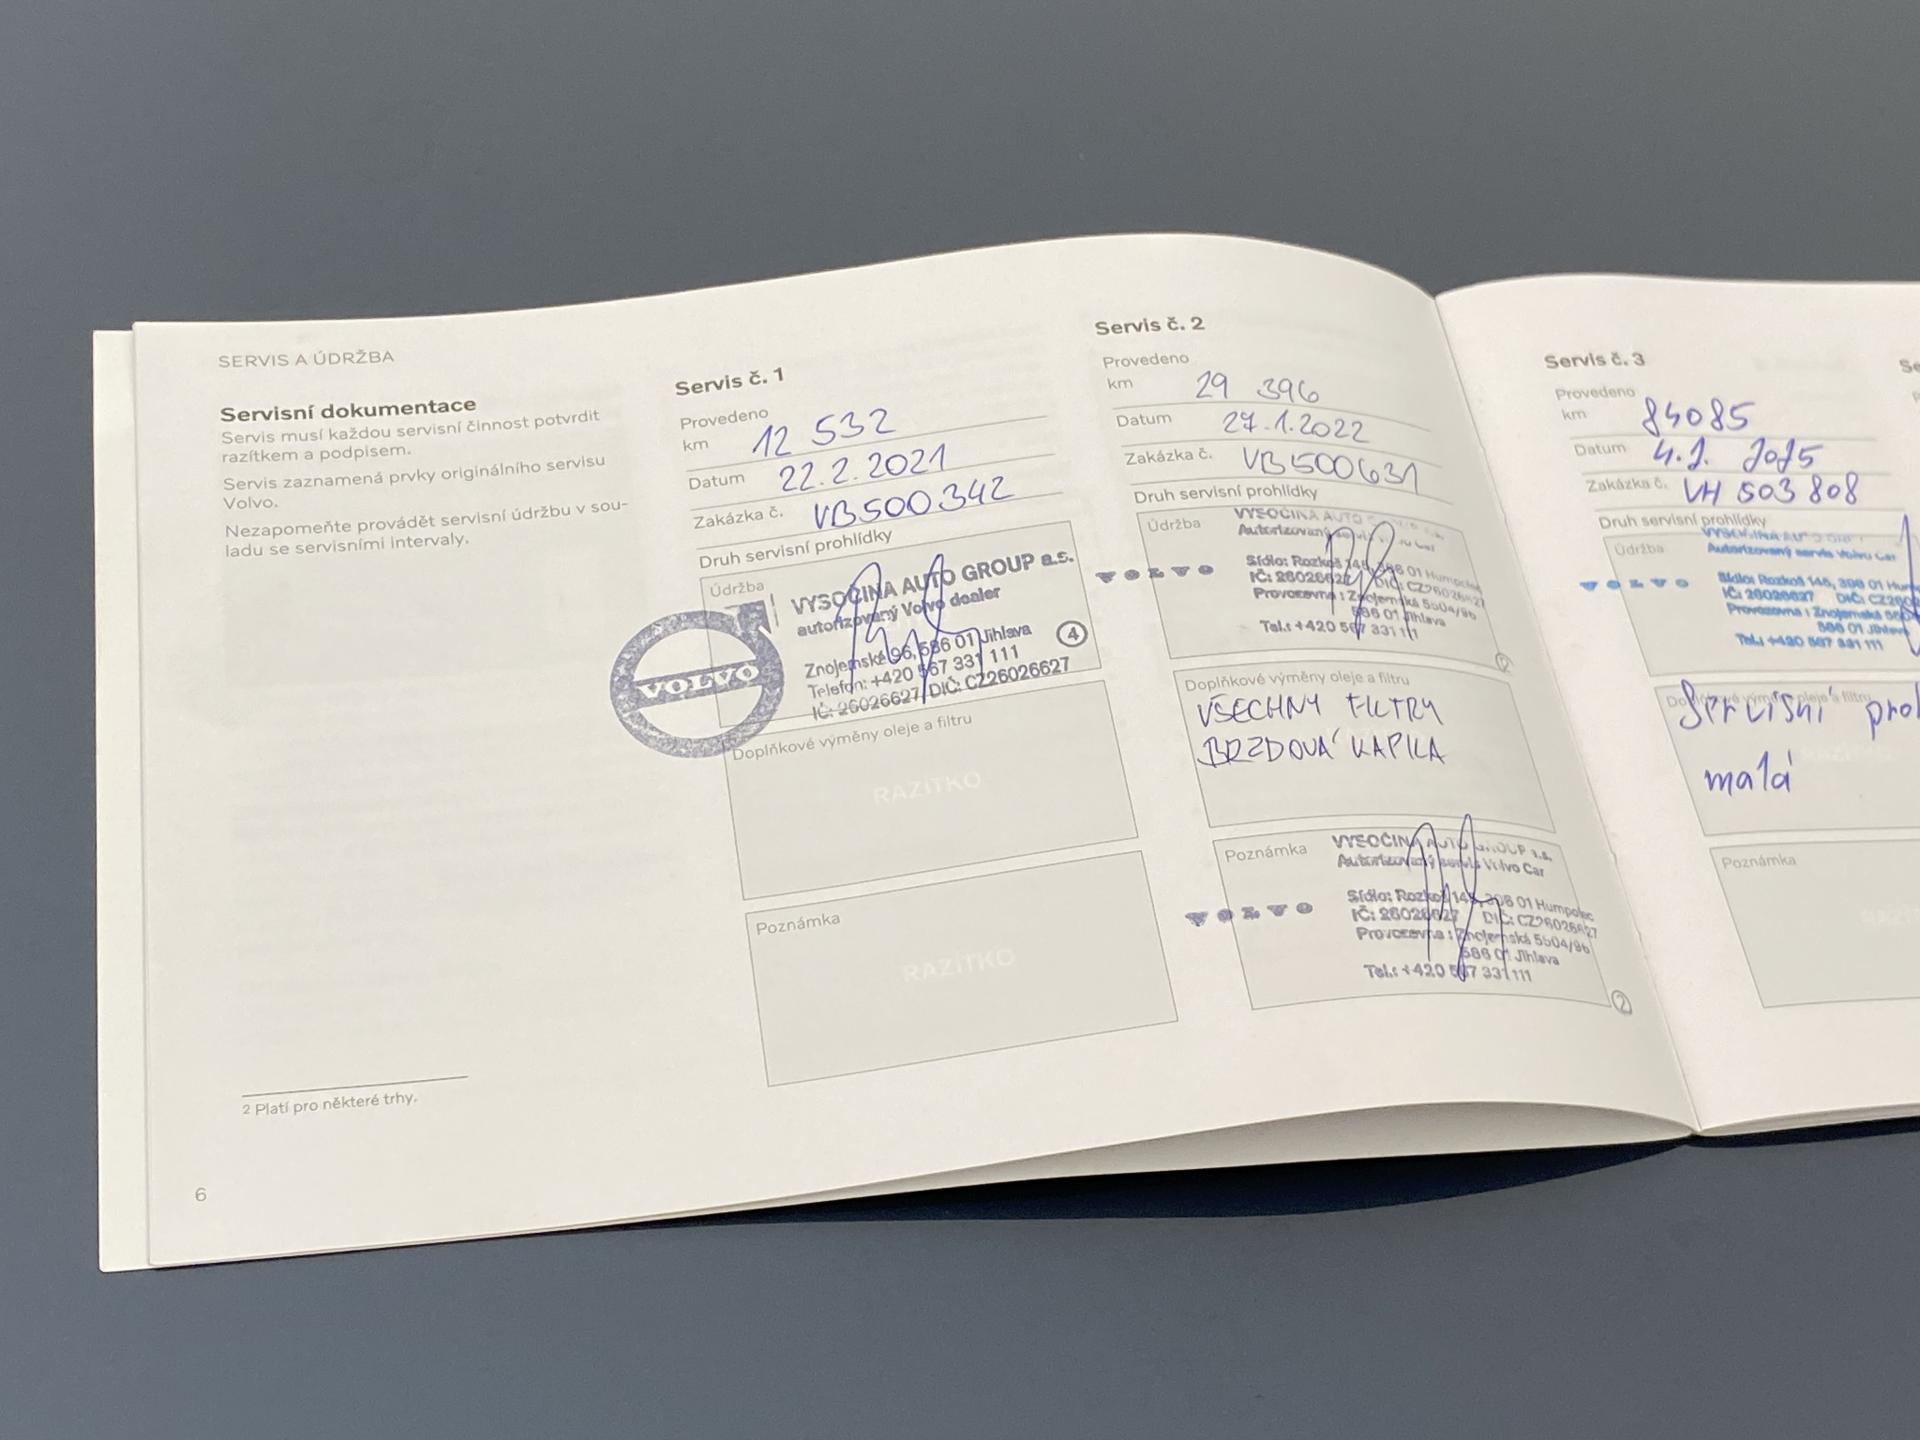 SERVIS A ÚDRŽBA
Servisní dokumentace
Servis musí každou servisní činnost potvrdit
razítkem a podpisem.
Servis zaznamená prvky originálního servisu
Volvo.
Nezapomeňte provádět servisní údržbu v sou-
ladu se servisními intervaly.
2 Platí pro některé trhy.
6
Servis č. 1
Provedeno
km 12 532
Datum 22.2.2021
Zakázka č. VB500342
Druh servisní prohlídky
Údržba
VOLVO
VYSOČINA AUTO GROUP a.s.
autorizovaný Volvo dealer
Znojemská 96, 586 01 Jihlava
Telefon: +420 567 331 111
IČ: 26026627, DIČ: CZ26026627
4
Doplňkové výměny oleje a filtru
RAZÍTKO
Poznámka
RAZÍTKO
Servis č. 2
Provedeno
km 29 396
Datum 27.1.2022
Zakázka č. VB500631
Druh servisní prohlídky
Údržba
VYSOČINA AUTO
Autorizovaný servis Volvo Car
VOLVO
Sídlo: Rozkoš 145, 396 01 Humpolec
IČ: 26026627 DIČ: CZ26026627
Provozovna: Znojemská 5504/96
586 01 Jihlava
Tel.: +420 567 331 111
2
Doplňkové výměny oleje a filtru
VŠECHNY FILTRY
BRZDOVÁ KAPLA
Poznámka
VYSOČINA AUTO GROUP a.s.
Autorizovaný servis Volvo Car
VOLVO
Sídlo: Rozkoš 145, 396 01 Humpolec
IČ: 26026627 DIČ: CZ26026627
Provozovna: Znojemská 5504/96
586 01 Jihlava
Tel.: +420 567 331 111
2
Servis č. 3
Provedeno
km 84085
Datum 4.2. 2025
Zakázka č. VH 503 808
Druh servisní prohlídky
Údržba
VYSOČINA AUTO
Autorizovaný servis Volvo Car
VOLVO
Sídlo: Rozkoš 145, 396 01 Hum
IČ: 26026627 DIČ: CZ260
Provozovna: Znojemská 550
586 01 Jihlava
Tel.: +420 567 331 111
Doplňkové výměny oleje a filtru
Servisní prol
malá
Poznámka
Se